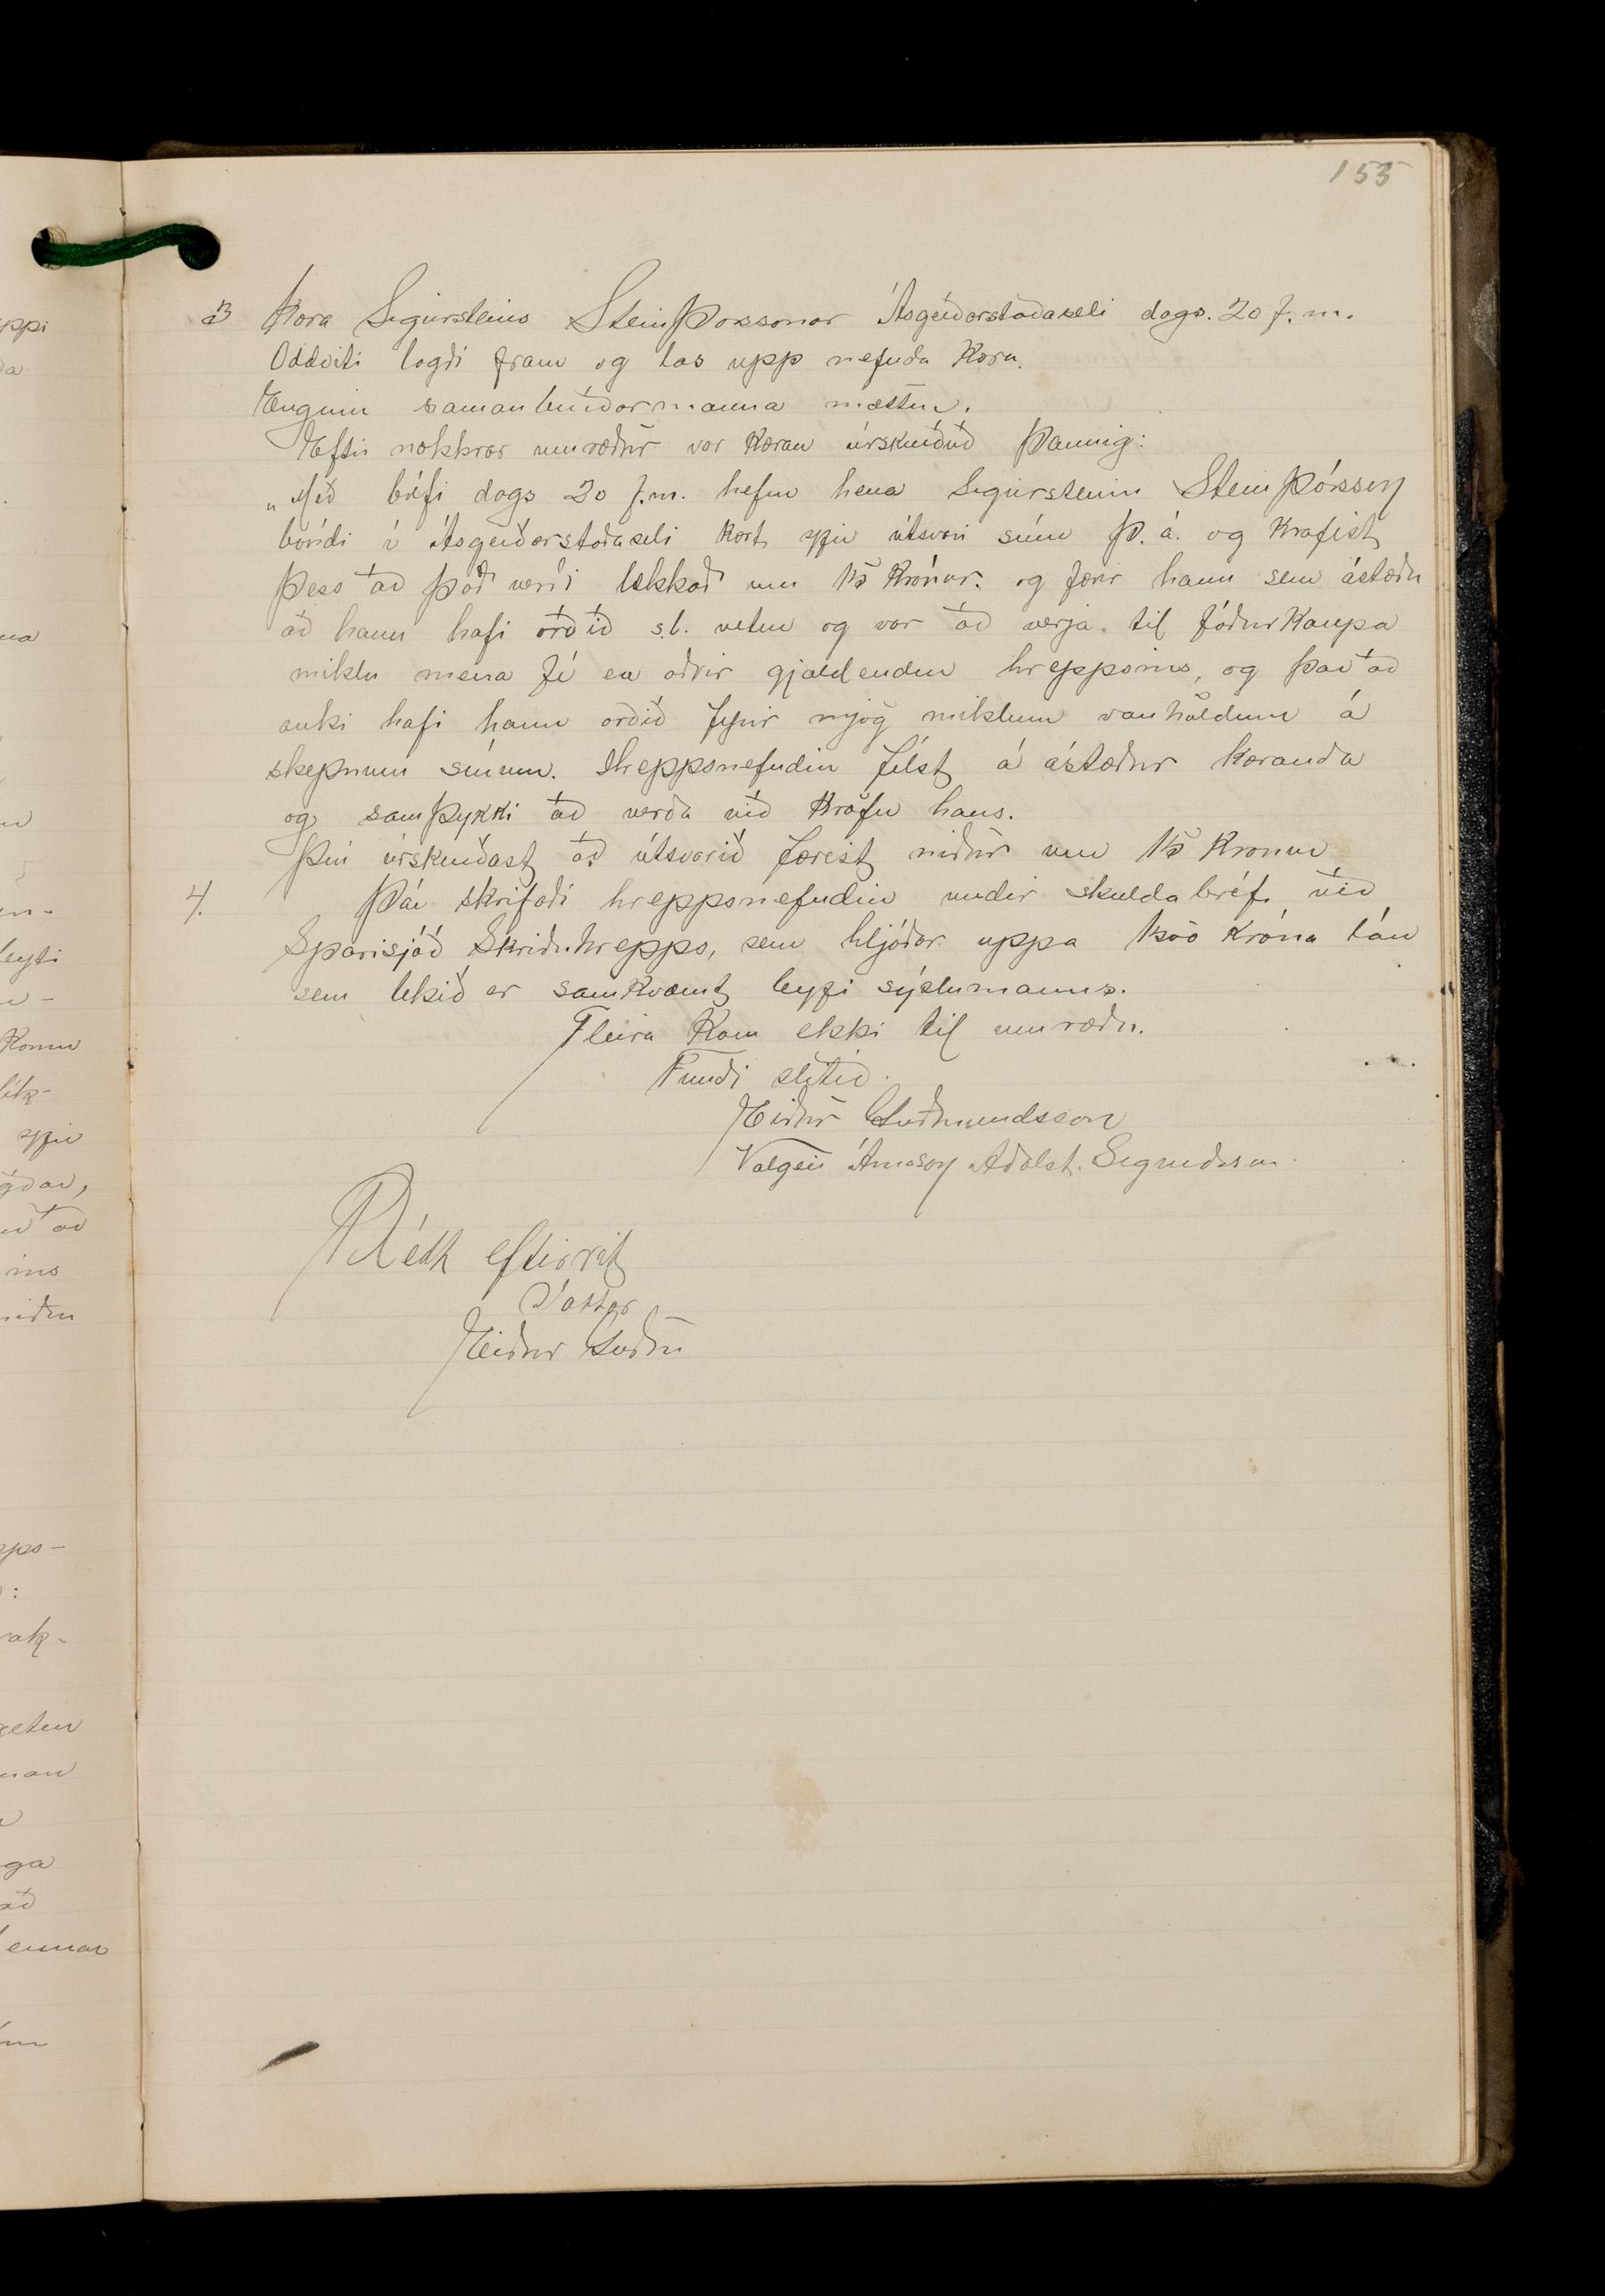 155
3 Kæra Sigursteins Steinþórssonar Ásgerðarstaðaseli dags. 20 f.m.
Oddviti lagði fram og las upp nefnda kæru.
Enginn samanburðarmanna mættur.
Eftir nokkrar umræður var kæran úrskurðuð þannig:
„Með bréfi dags 20 f.m. hefur herra Sigursteinn Steinþórsson
bóndi í Ásgerðarstaðaseli kært yfir útsvari sínu þ.á. og krafist
þess að það verði lækkað um 15 krónur. og færir hann sem ástæðu
að hann hafi orðið s.l. vetur og vor að verja til fóðurkaupa
miklu meira fé en aðrir gjaldendur hreppsins, og þar að
auki hafi hann orðið fyrir mjög miklum vanhöldum á
skepnum sínum. Hreppsnefndin félst á ástæður kæranda
og samþykkti að verða við kröfu hans.
Því úrskurðast að útsvarið færist niður um 15 krónur
4. Þá skrifaði hreppsnefndin undir skuldabréf við
Sparisjóð Skriðuhrepps, sem hljóðar uppá 1500 króna lán
sem tekið er samkvæmt leyfi sýslumanns.
Fleira kom ekki til umræðu.
Fundi slitið.
Eiður Guðmundsson
Valgeir Árnason Aðalst. Sigurðsson
Rétt eftirrit
Váttar
Eiður Guðm
uppi
ða
na
leyti
komu
yfir
gðar,
að
ins
niður
pps-
:
vak-
nan
ga
að
ennar